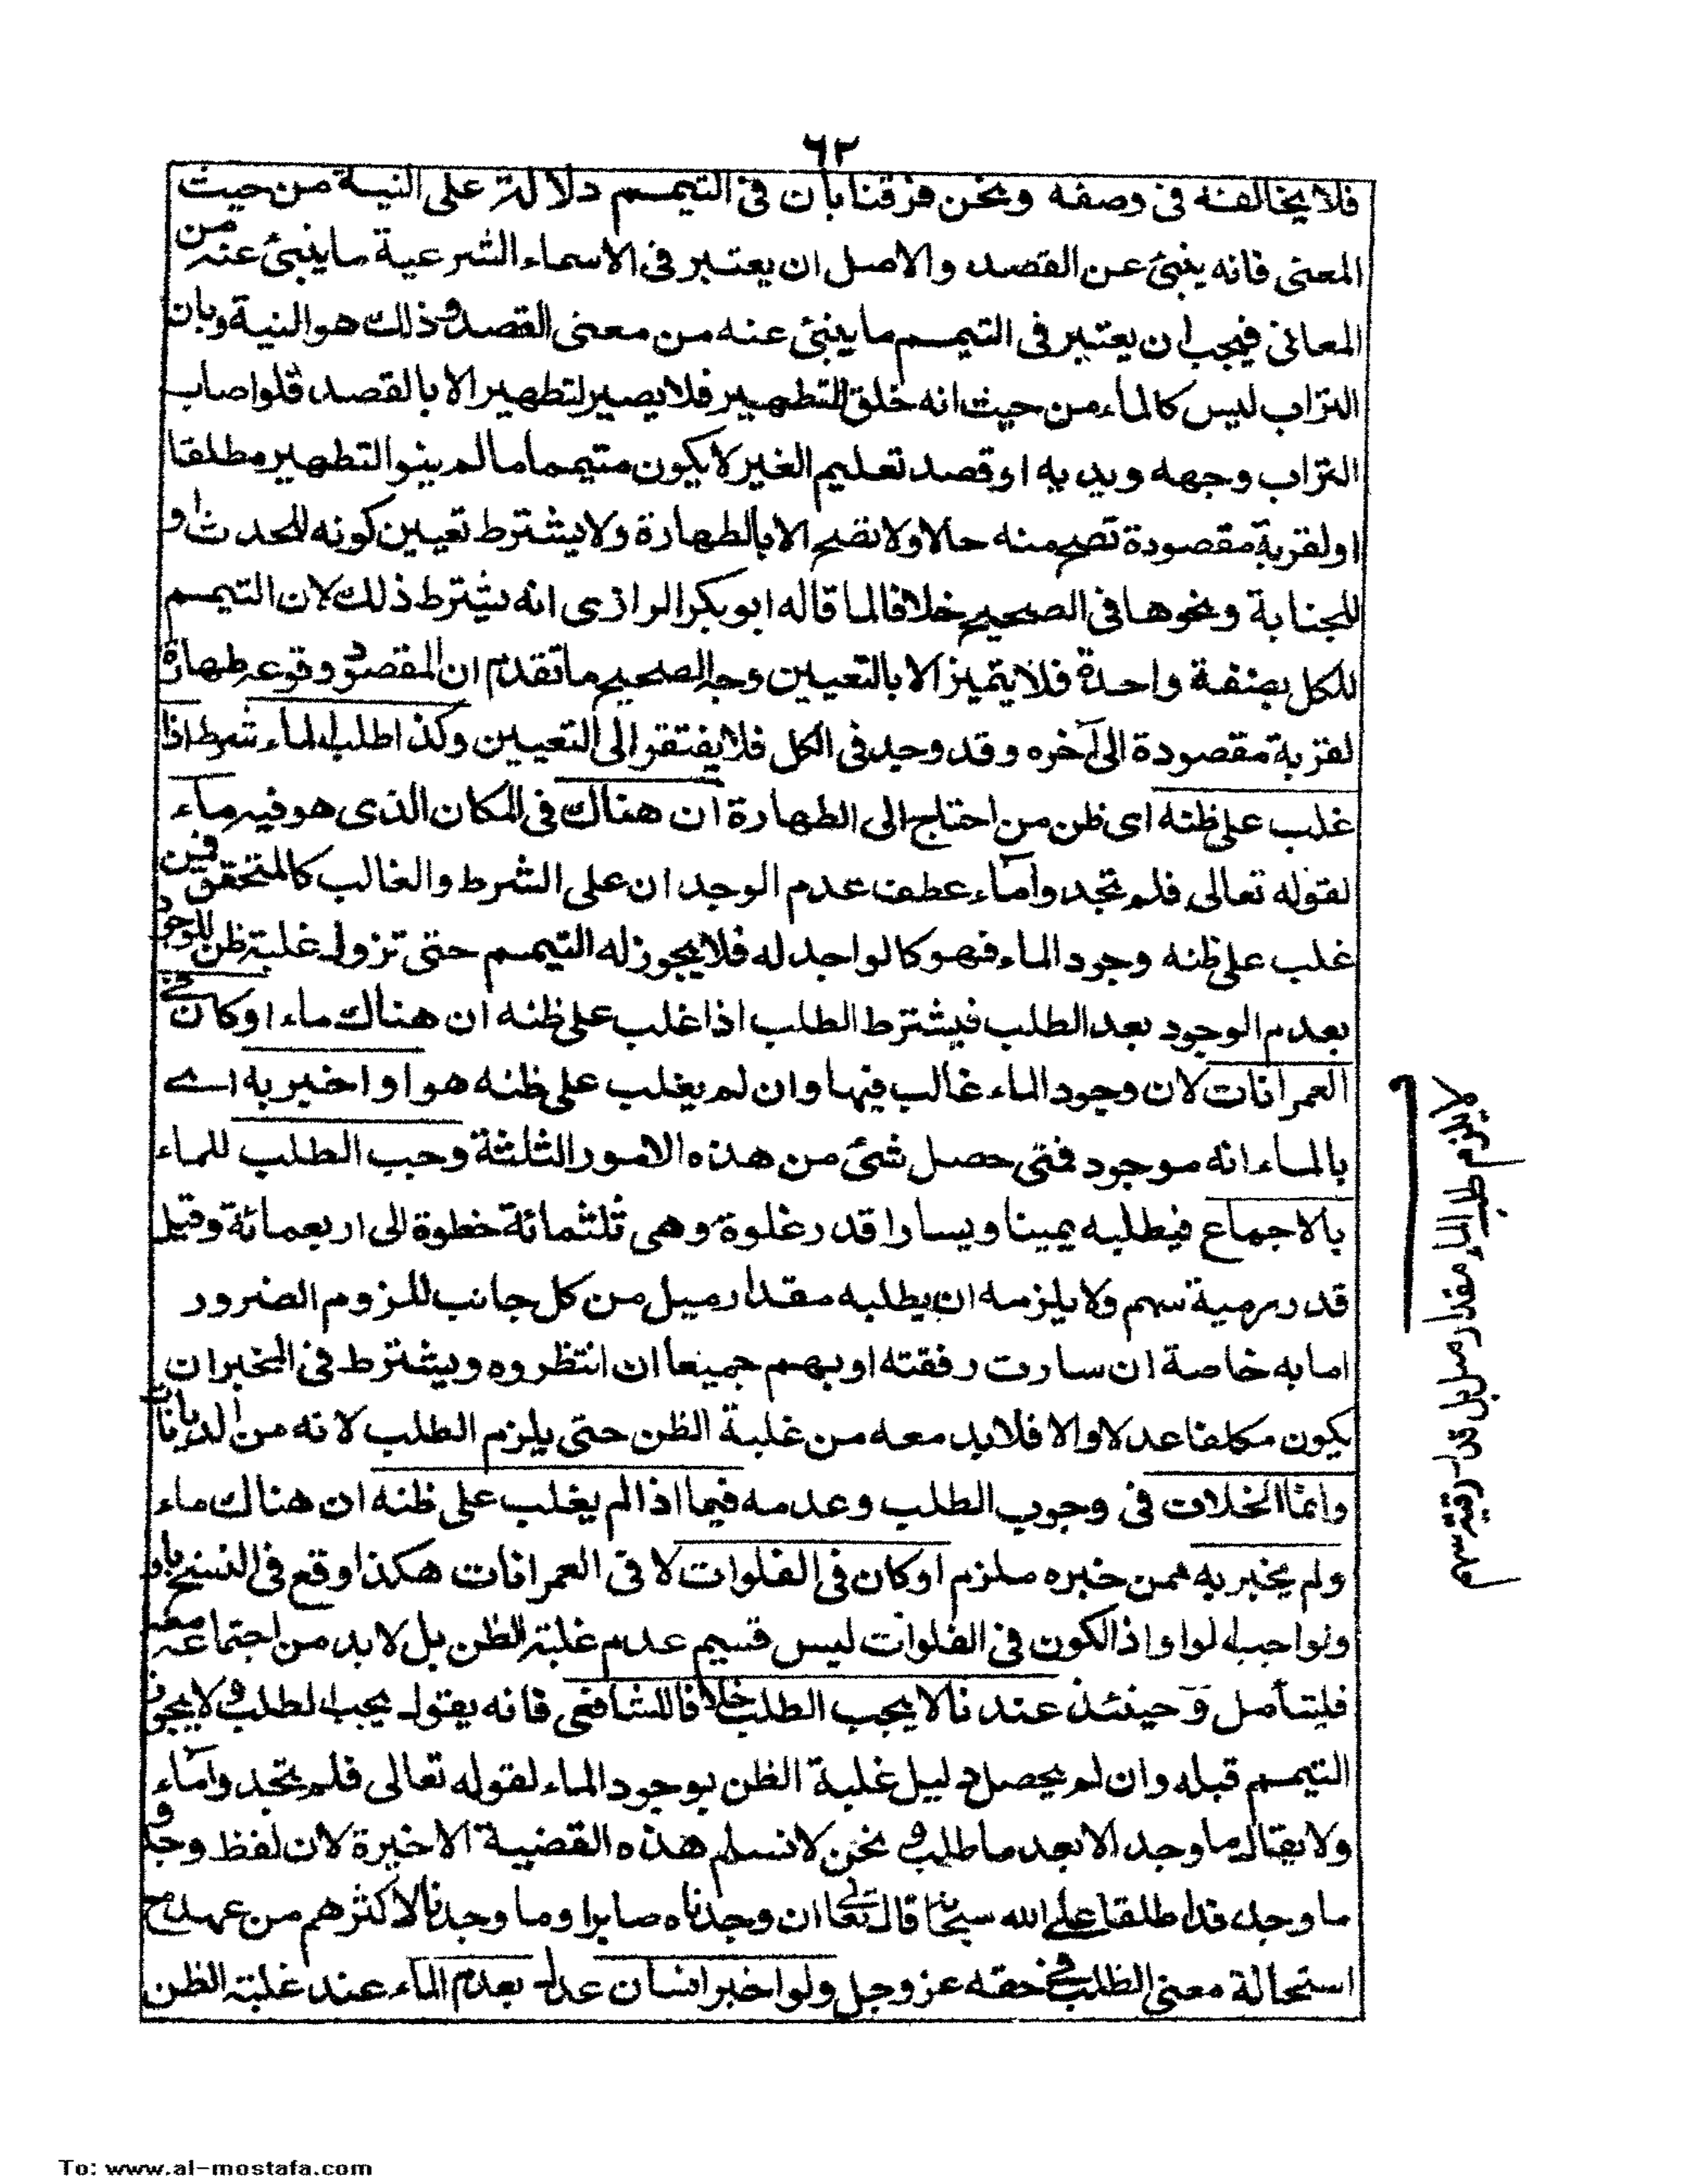 ٦٢
فلا يخالفه فى وصفه ونحن فرقنا بان فى التيمم دلالة على النية من حيث
المعنى فانه ينبئ عن القصد والاصل ان يعتبر فى الاسماء الشرعية ما ينبئ عنه من
المعانى فيجب ان يعتبر فى التيمم ما ينبئ عنه من معنى القصد وذلك هو النية وبان
التراب ليس كالماء من حيث انه خلق للتطهير فلا يصير لتطهير الا بالقصد فلو اصاب
التراب وجهه ويديه او قصد تعليم الغير لا يكون متيمما ما لم ينو التطهير مطلقا
او لقربة مقصودة تصح منه حالا ولا تصح الا بالطهارة ولا يشترط تعيين كونه للحدث او
للجنابة ونحوها فى الصحيح خلافا لما قاله ابو بكر الرازى انه يشترط ذلك لان التيمم
للكل بصفة واحدة فلا يتميز الا بالتعيين وجه الصحيح ما تقدم ان المقصود وقوعه طهارة
لقربة مقصودة الى آخره وقد وجد فى الكل فلا يفتقر الى التعيين وكذا طلب الماء شرط اذا
غلب على ظنه اى ظن من احتاج الى الطهارة ان هناك فى المكان الذى هو فيه ماء
لقوله تعالى فلم تجدوا ماء عطف عدم الوجدان على الشرط والغالب كالمتحقق فمن
غلب على ظنه وجود الماء فهو كالواجد له فلا يجوز له التيمم حتى تزول غلبة ظن الوجود
بعدم الوجود بعد الطلب فيشترط الطلب اذا غلب على ظنه ان هناك ماء او كان فى
العمرانات لان وجود الماء غالب فيها وان لم يغلب على ظنه هو او اخبر به اى
بالماء انه موجود فمتى حصل شئ من هذه الامور الثلثة وجب الطلب للماء
بالاجماع فيطلبه يمينا ويسارا قدر غلوة وهى ثلثمائة خطوة الى اربعمائة وقيل
قدر رمية سهم ولا يلزمه ان يطلبه مقدار ميل من كل جانب للزوم الضرور
اما به خاصة ان سارت رفقته او بهم جميعا ان انتظروه ويشترط فى المخبر ان
يكون مكلفا عدلا والا فلا بد معه من غلبة الظن حتى يلزم الطلب لانه من الديانات
وانما الخلاف فى وجوب الطلب وعدمه فيما اذا لم يغلب على ظنه ان هناك ماء
ولم يخبر به ممن خبره ملزم او كان فى الفلوات لا فى العمرانات هكذا وقع فى النسخ باو
ولواجب له لواو اذ الكون فى الفلوات ليس قسيم عدم غلبة الظن بل لا بد من اجتماعه معه
فليتأمل وحينئذ عندنا لا يجب الطلب خلافا للشافعى فانه يقول يجب الطلب ولا يجوز
التيمم قبله وان لم يحصل دليل غلبة الظن بوجود الماء لقوله تعالى فلم تجدوا ماء
ولا يقال ما وجد الا بعد ما طلب ونحن لا نسلم هذه القضية الاخيرة لان لفظ وجد و
ما وجد قد اطلقا على الله سبحانه قال تعالى ان وجدناه صابرا وما وجدنا لاكثرهم من عهد مع
استحالة معنى الطلب فى حقه عز وجل ولو اخبر انسان عدل بعدم الماء عند غلبة الظن
لا يلزم طلب الماء مقدار ميل بل قدر رمية سهم
To: www.al-mostafa.com